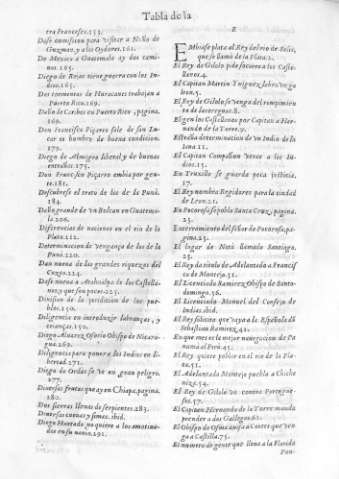 Tabla de la
tra Franceses.153.
Dase comission para visitar a Nuño de
Guzman, y a los Oydores.161.
De Mexico a Guatemala ay dos cami-
nos.165.
Diego de Rojas tiene guerra con los In-
dios.165.
Dos tormentas de Huracanes trabajan a
Puerto Rico.169.
Daño de Caribes en Puerto Rico, pagina.
169.
Don Francisco Piçarro sale de sin Lu-
car es hombre de buena condicion.
175.
Diego de Almagro liberal y de buenas
entrañas.175.
Don Francisco Piçarro embia por gen-
te.181.
Descubrese el trato de los de la Puná.
184.
Daño grande de un Bolcan en Guatema-
la.206.
Diferencias de naciones en el rio de la
Plata.212.
Determinacion de vengança de los de la
Puná.220.
Dan nueva de las grandes riquezas del
Cuzco.224.
Dase nueva a Atahualpa de los Castella-
nos, y que son pocos.225.
Division de la jurisdicion de los pue-
blos.250.
Diligencia en introduzir labranças, y
crianças.250.
Diego Alvarez Osorio Obispo de Nicara-
gua.269.
Diligencia para poner a los Indios en li-
bertad.271.
Diego de Ordas se ve en gran peligro.
277.
Diversas frutas que ay en Chiapa, pagina.
280.
Dos sierras llenas de serpientes.283.
Diversas cuevas y simas.ibid.
Diego Hurtado no quiere a los amotina-
dos en su navio.291.
E
EMbiase plata al Rey del rio de Solis,
que se llamó de la Plata.2.
El Rey de Gilolo pide socorro a los Caste-
llanos.4.
El Capitan Martin Yñiguez
leon.5.
El Rey de Gilolo se venga del rompimien
to de los
Eligen los Castellanos por Capitan a Her-
nando de la Torre.9.
Estraña determinacion de un Indio de la
isla.11.
El Capitan Campañon vence a los In-
dios.15.
En Truxillo se guarda poca justicia.
17.
El Rey nombra Regidores para la ciudad
de Leon.21.
En Potorosise pobla Santa Cruz, pagina.
23.
El lugar de Natá llamado Santiago.
25.
El Rey da titulo de Adelantado a Francis
co de Montejo.31.
El Licenciado Ramirez Obispo de Santo-
domingo.36.
El Licenciado Manuel del Consejo de
Indias.ibid.
El Rey solicita que vaya a la Española dõ
Sebastian Ramirez.41.
En que
El Rey quiere poblar en el rio de la Pla-
ta.51.
El Adelantado Montejo puebla a Chiche
niza.54.
El Rey de Gilolo va contra Portugue-
ses.57.
El Capitan Hernando de la Torre manda
prender a dos Gallegos.61.
El Obispo de Osma avisa a Cortes que ven
ga a Castilla.75.
El numero de gente que llevó a la Florida
Pan-